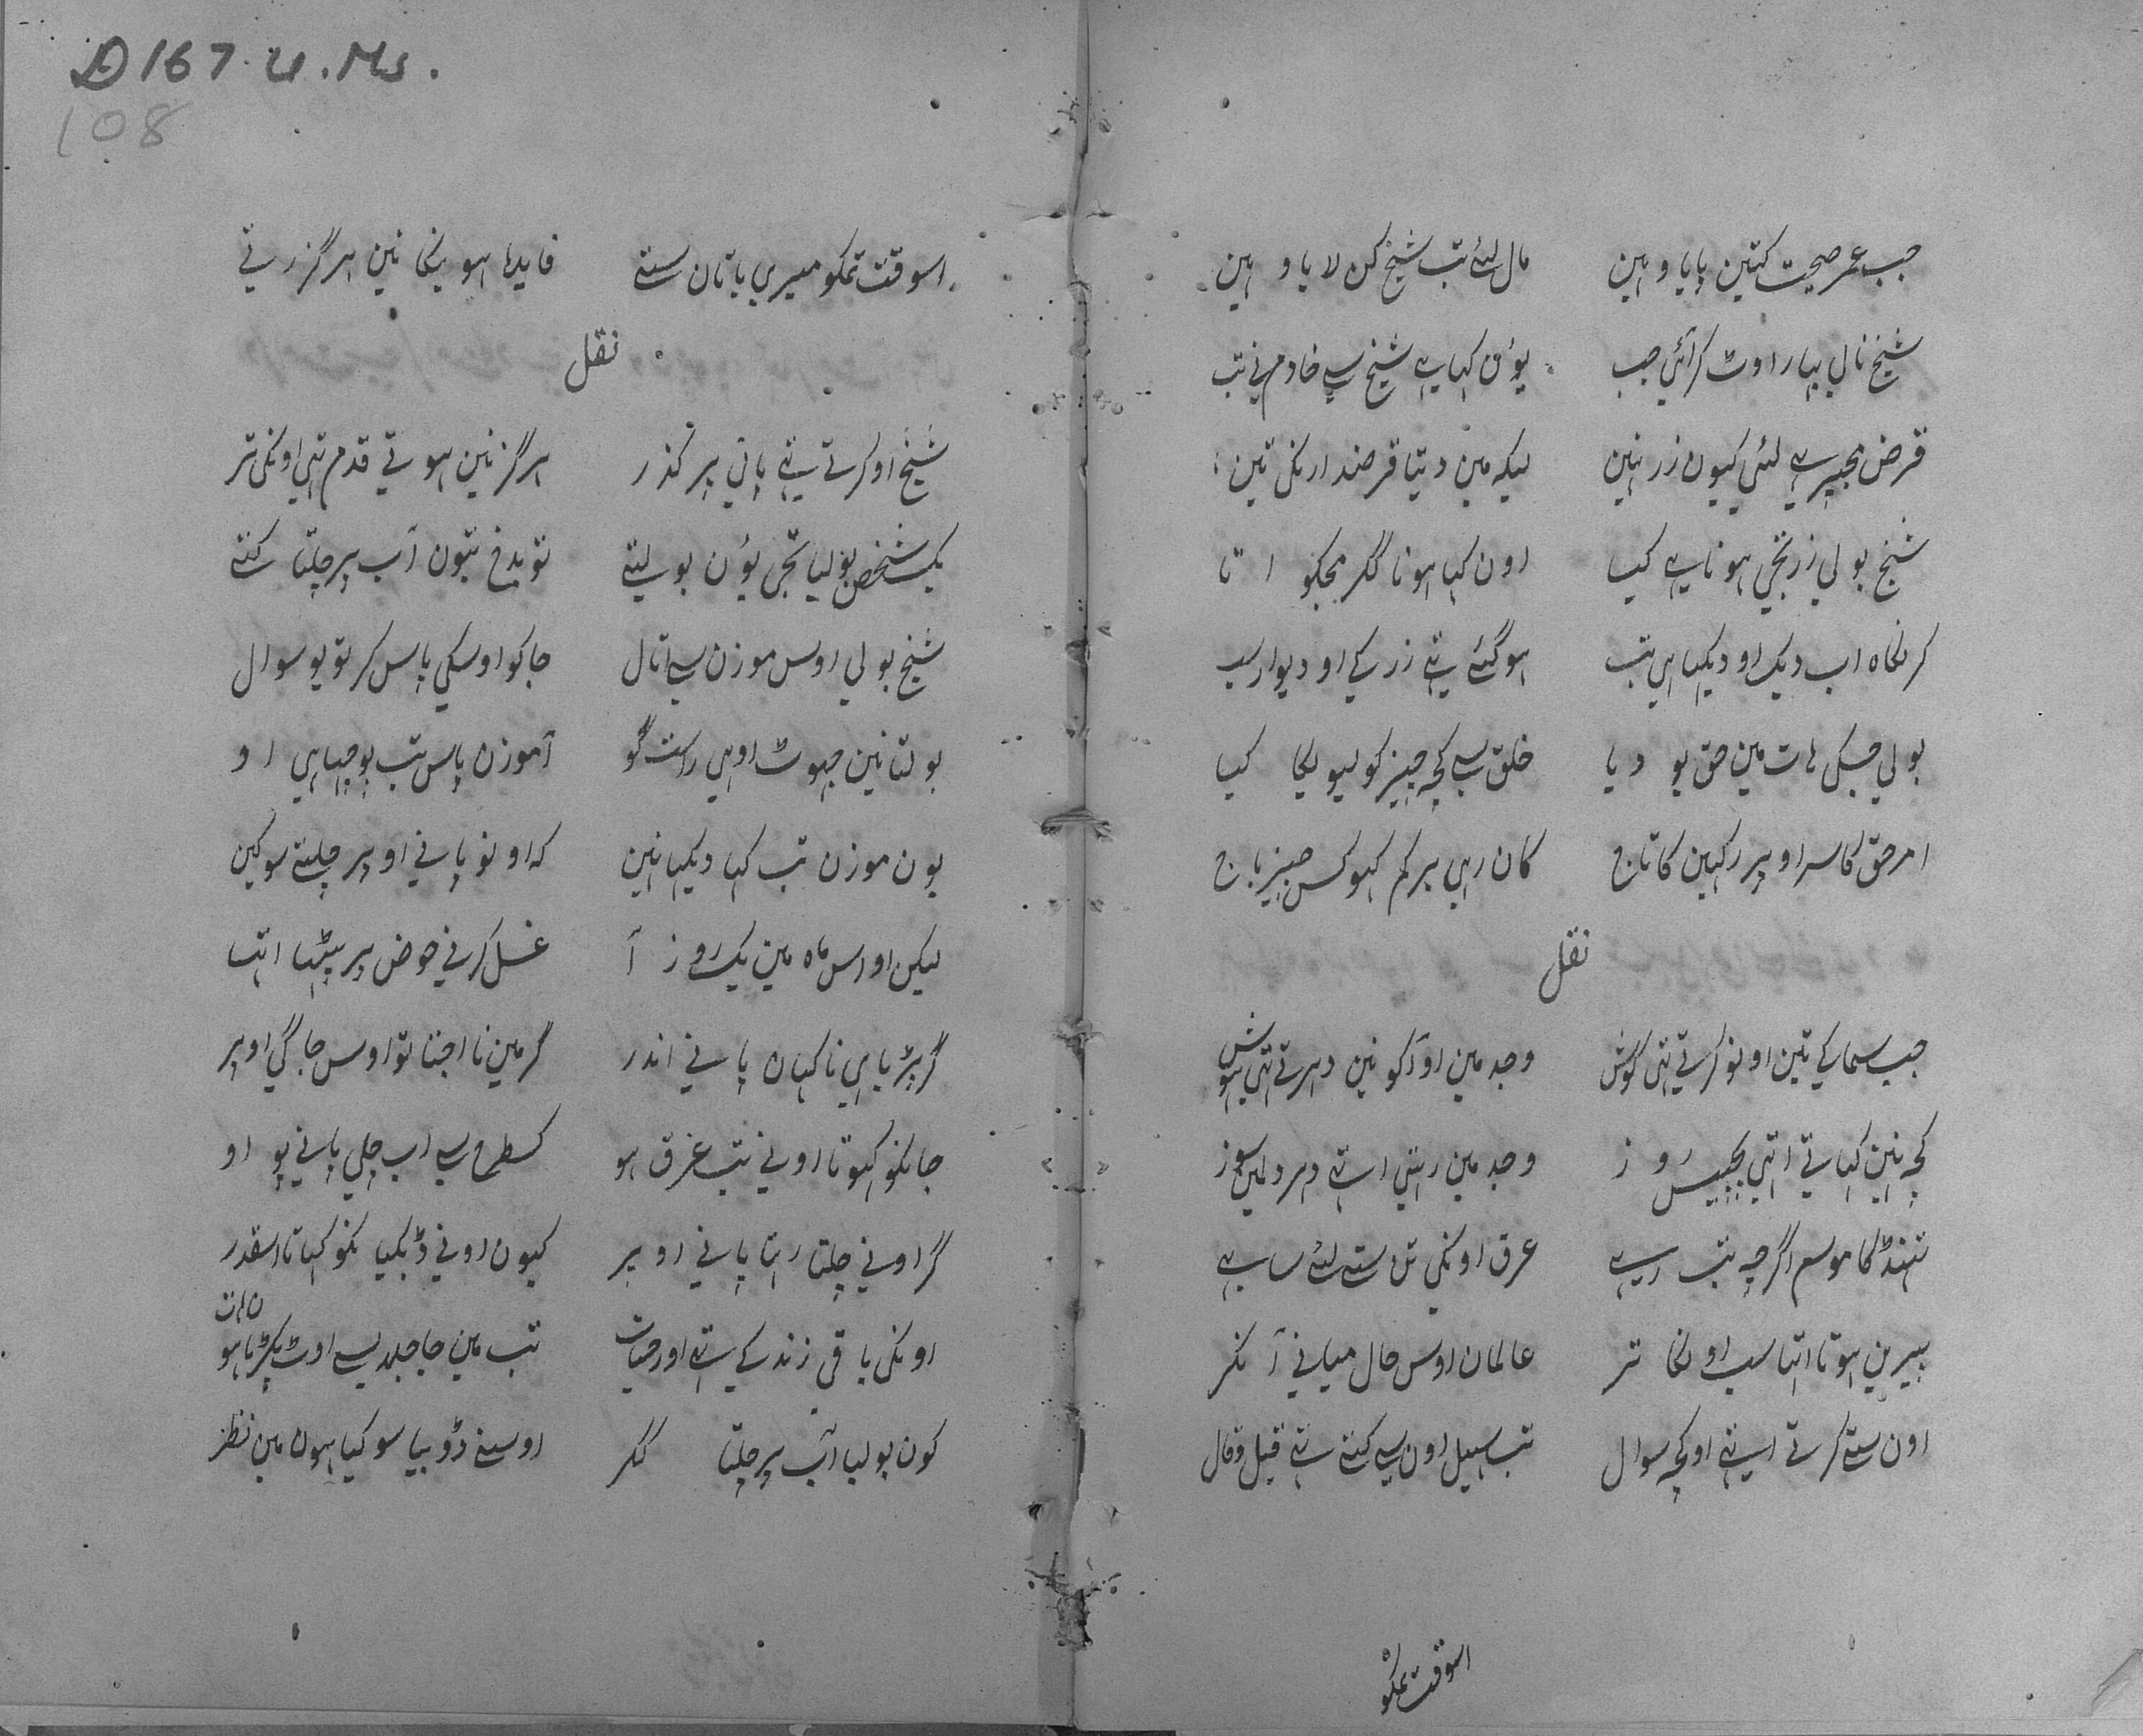 D 167. U. Ms.
108
جب عمر صحیت کتین پایا وہین مال لئے تب شیخ کن لایا وہین
شیخ نالی بہار اوٹ کر آئی جب یوں کہا ہے شیخ سے خادم نے تب
قرض مجپر ہے لئی کیون زر نہین لیکہ مین دیتا قرضدار نکی تین
شیخ بولی زر تجی ہونا ہے کیا اون کہا ہونا مگر مجکو اتا
کر نگاہ اب دیک او دیکہا ہی تب ہو گئے تہے زر کے او دیوار سب
بولی جسکی ہات مین حق یو دیا خلق سے کچہ چیز کو لیو یگا کیا
امر حق کا سر اوپر رکہین کا تاج کان رہی ہر کم کہو کس چیز باج
نقل
جب سماکے تین او نو کرتے تہی گوش وجد مین او آکو نین دہرتے تہی ہوش
کچہ نہین کہاتے اتہی پچیس روز وجد مین رہتی اتہے دہر دلمین سوز
تہنڈ کا موسم اگر چہ تب رہے عرق اونکی تن ستے لئے سا بہے
پیرہن ہوتا اتہا سب اونکا تر عالمان اوس حال میانی آنکر
اون ستے کرتے اتہے او کچہ سوال تب سہیل اون سے کتے تہے قیل وقال
اسوقت تمکو
اسوقت تمکو میری باتان ستے فایدہا ہویگا نین ہرگز رتے
نقل
شیخ او کرتے تہے پانی پر گذر ہرگز نین ہوتے قدم تہی اونکی تر
یک شخص بولیا تجی یوں بولتے تو یدغ تون آب پر چلتا کتے
شیخ بولی اوس موزن سے اتال جا کو اوسکی پاس کر تو یو سوال
بولتا نین جہوٹ او ہی راست گو آموزن پاس تب پوچہا ہی او
یون موزن تب کہا دیکہا نین کہ او نو پانی اوپر چلتے سو کین
لیکن او اس ماہ مین یک روز آ غسل کرنی حوض پر بیٹہا اتہا
گر پڑیا ہی ناکہان پانی اندر گر مین نا اچتا تو اوس جاگی اوپر
جانکو کہوتا اونے تب غرق ہو کسطرح سے اب چلی پانی پو او
گر اونے چلتا رہتا پانی اوپر کیون اونے ڈبکیا نکو کہاتا اسقدر
اونکی باقی زندگی تہے اور حیات تب مین جا جلدی سے اوٹ پکڑیا ہون ہات
کون بولیا آب پر چلتا مگر اوسنے ڈوبیا سو کیا ہون مین نظر